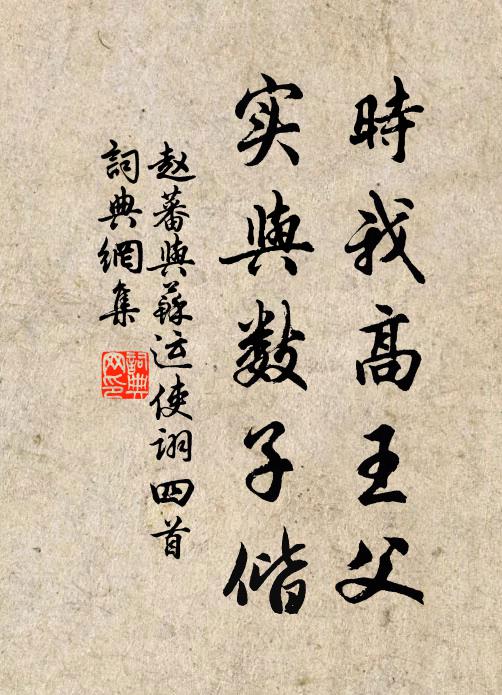 時我高王父
实與数子偕
赵蕃與蘇运使诩四首
詞典網集
詞典
网印